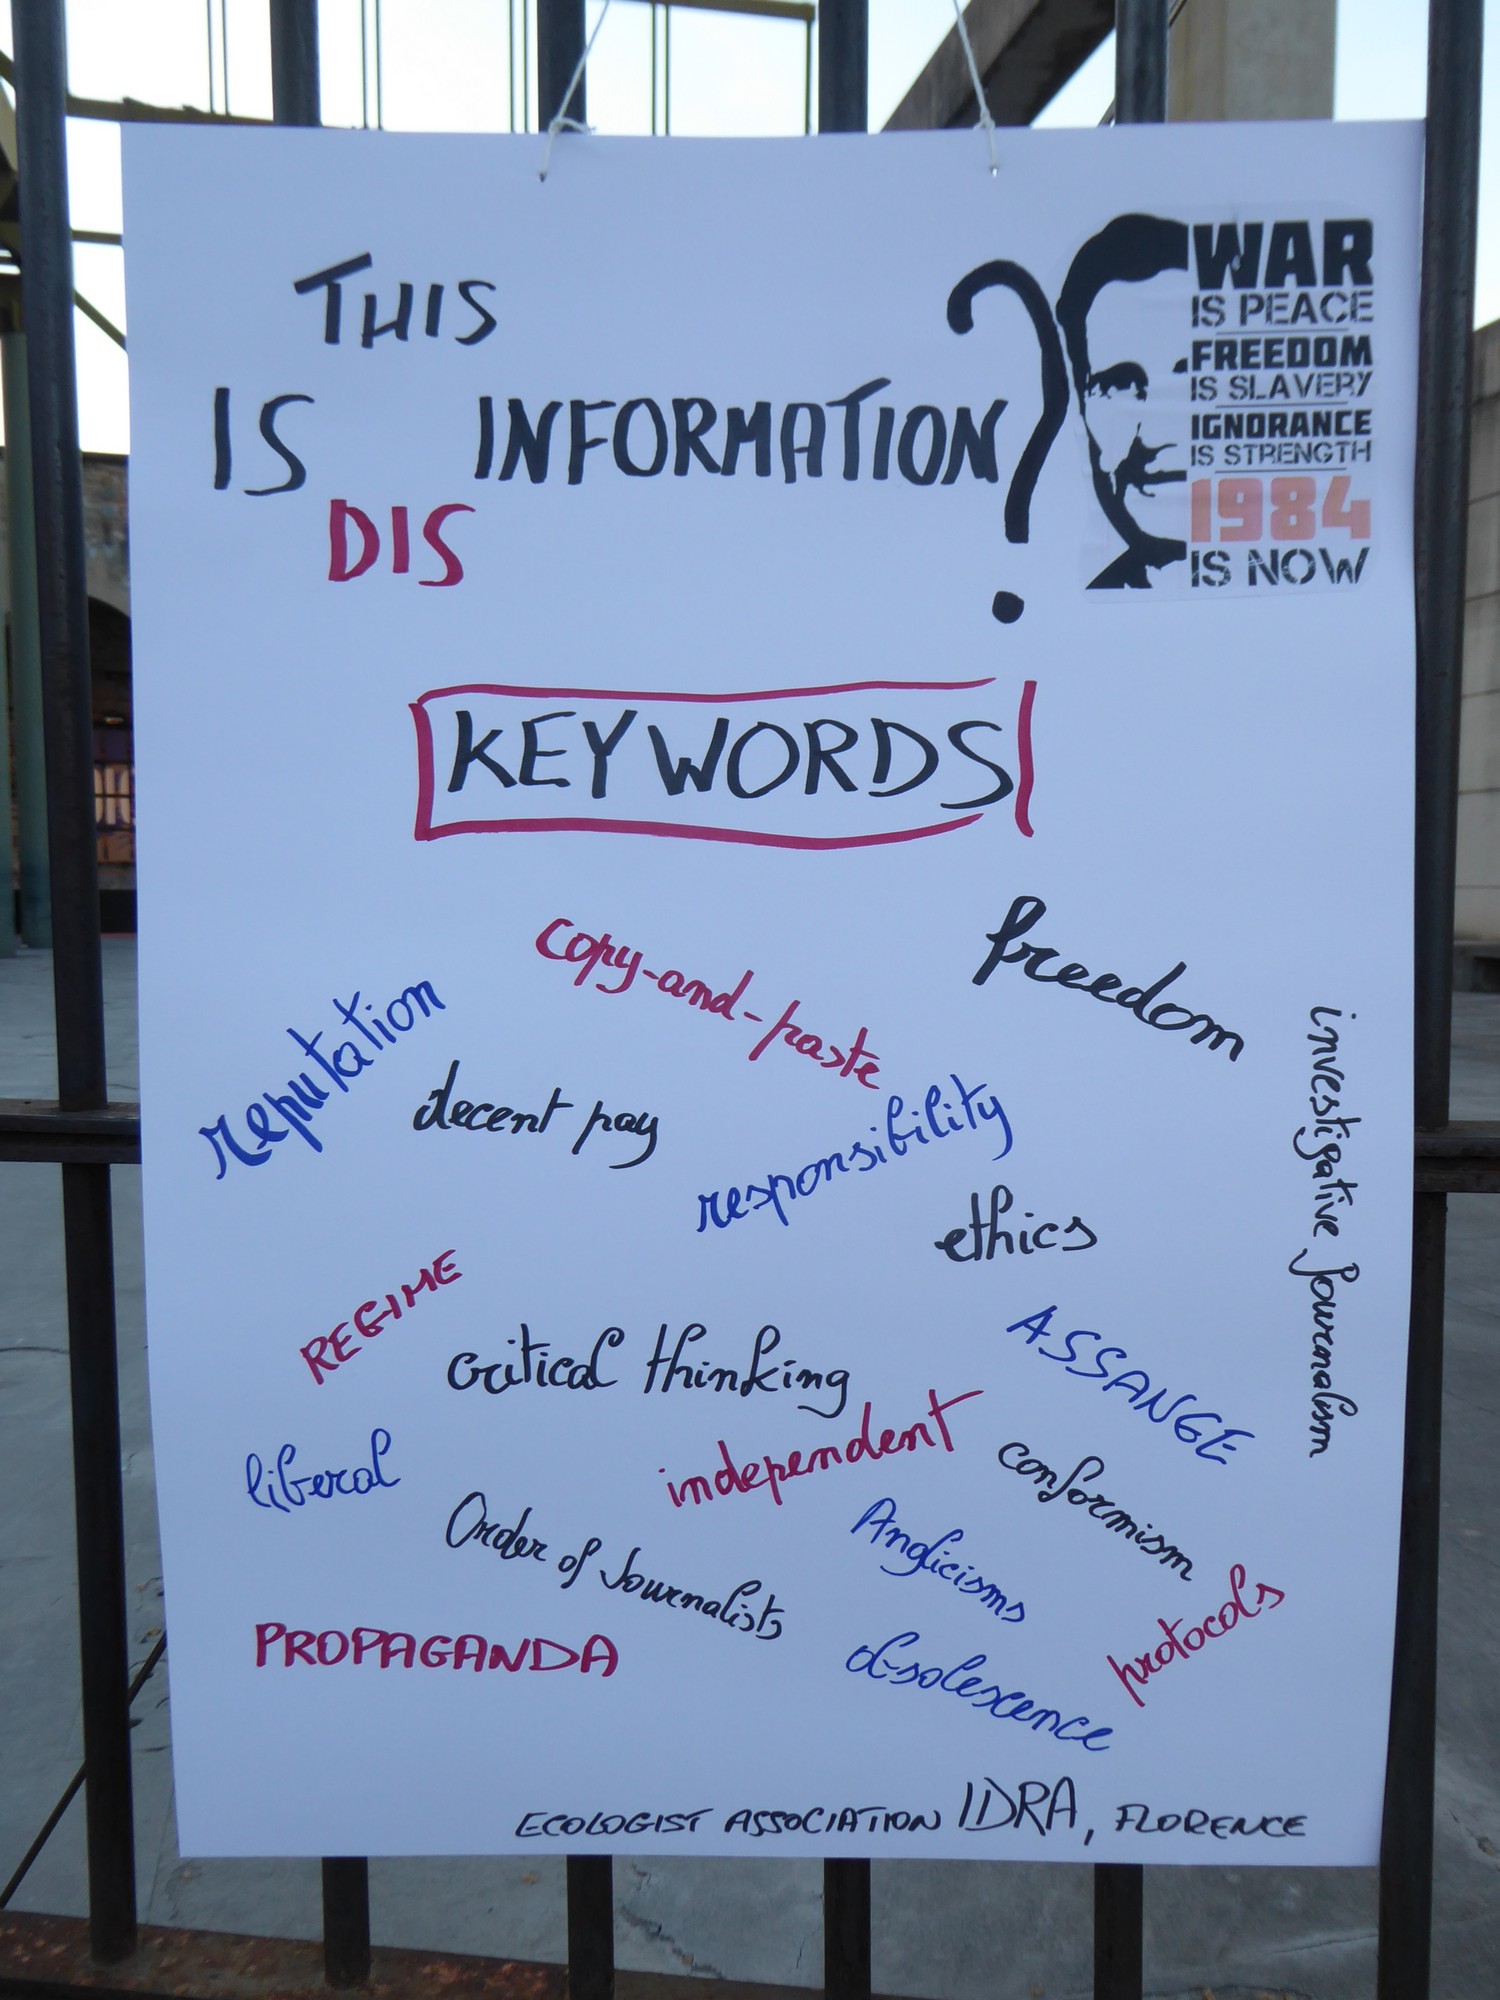 THIS
IS INFORMATION?
DIS
WAR
IS PEACE
FREEDOM
IS SLAVERY
IGNORANCE
IS STRENGTH
1984
IS NOW
KEYWORDS
copy-and-paste
freedom
reputation
decent pay
responsibility
investigative journalism
ethics
REGIME
critical thinking
ASSANGE
liberal
independent
conformism
Order of Journalists
Anglicisms
protocols
PROPAGANDA
obsolescence
ECOLOGIST ASSOCIATION IDRA, FLORENCE